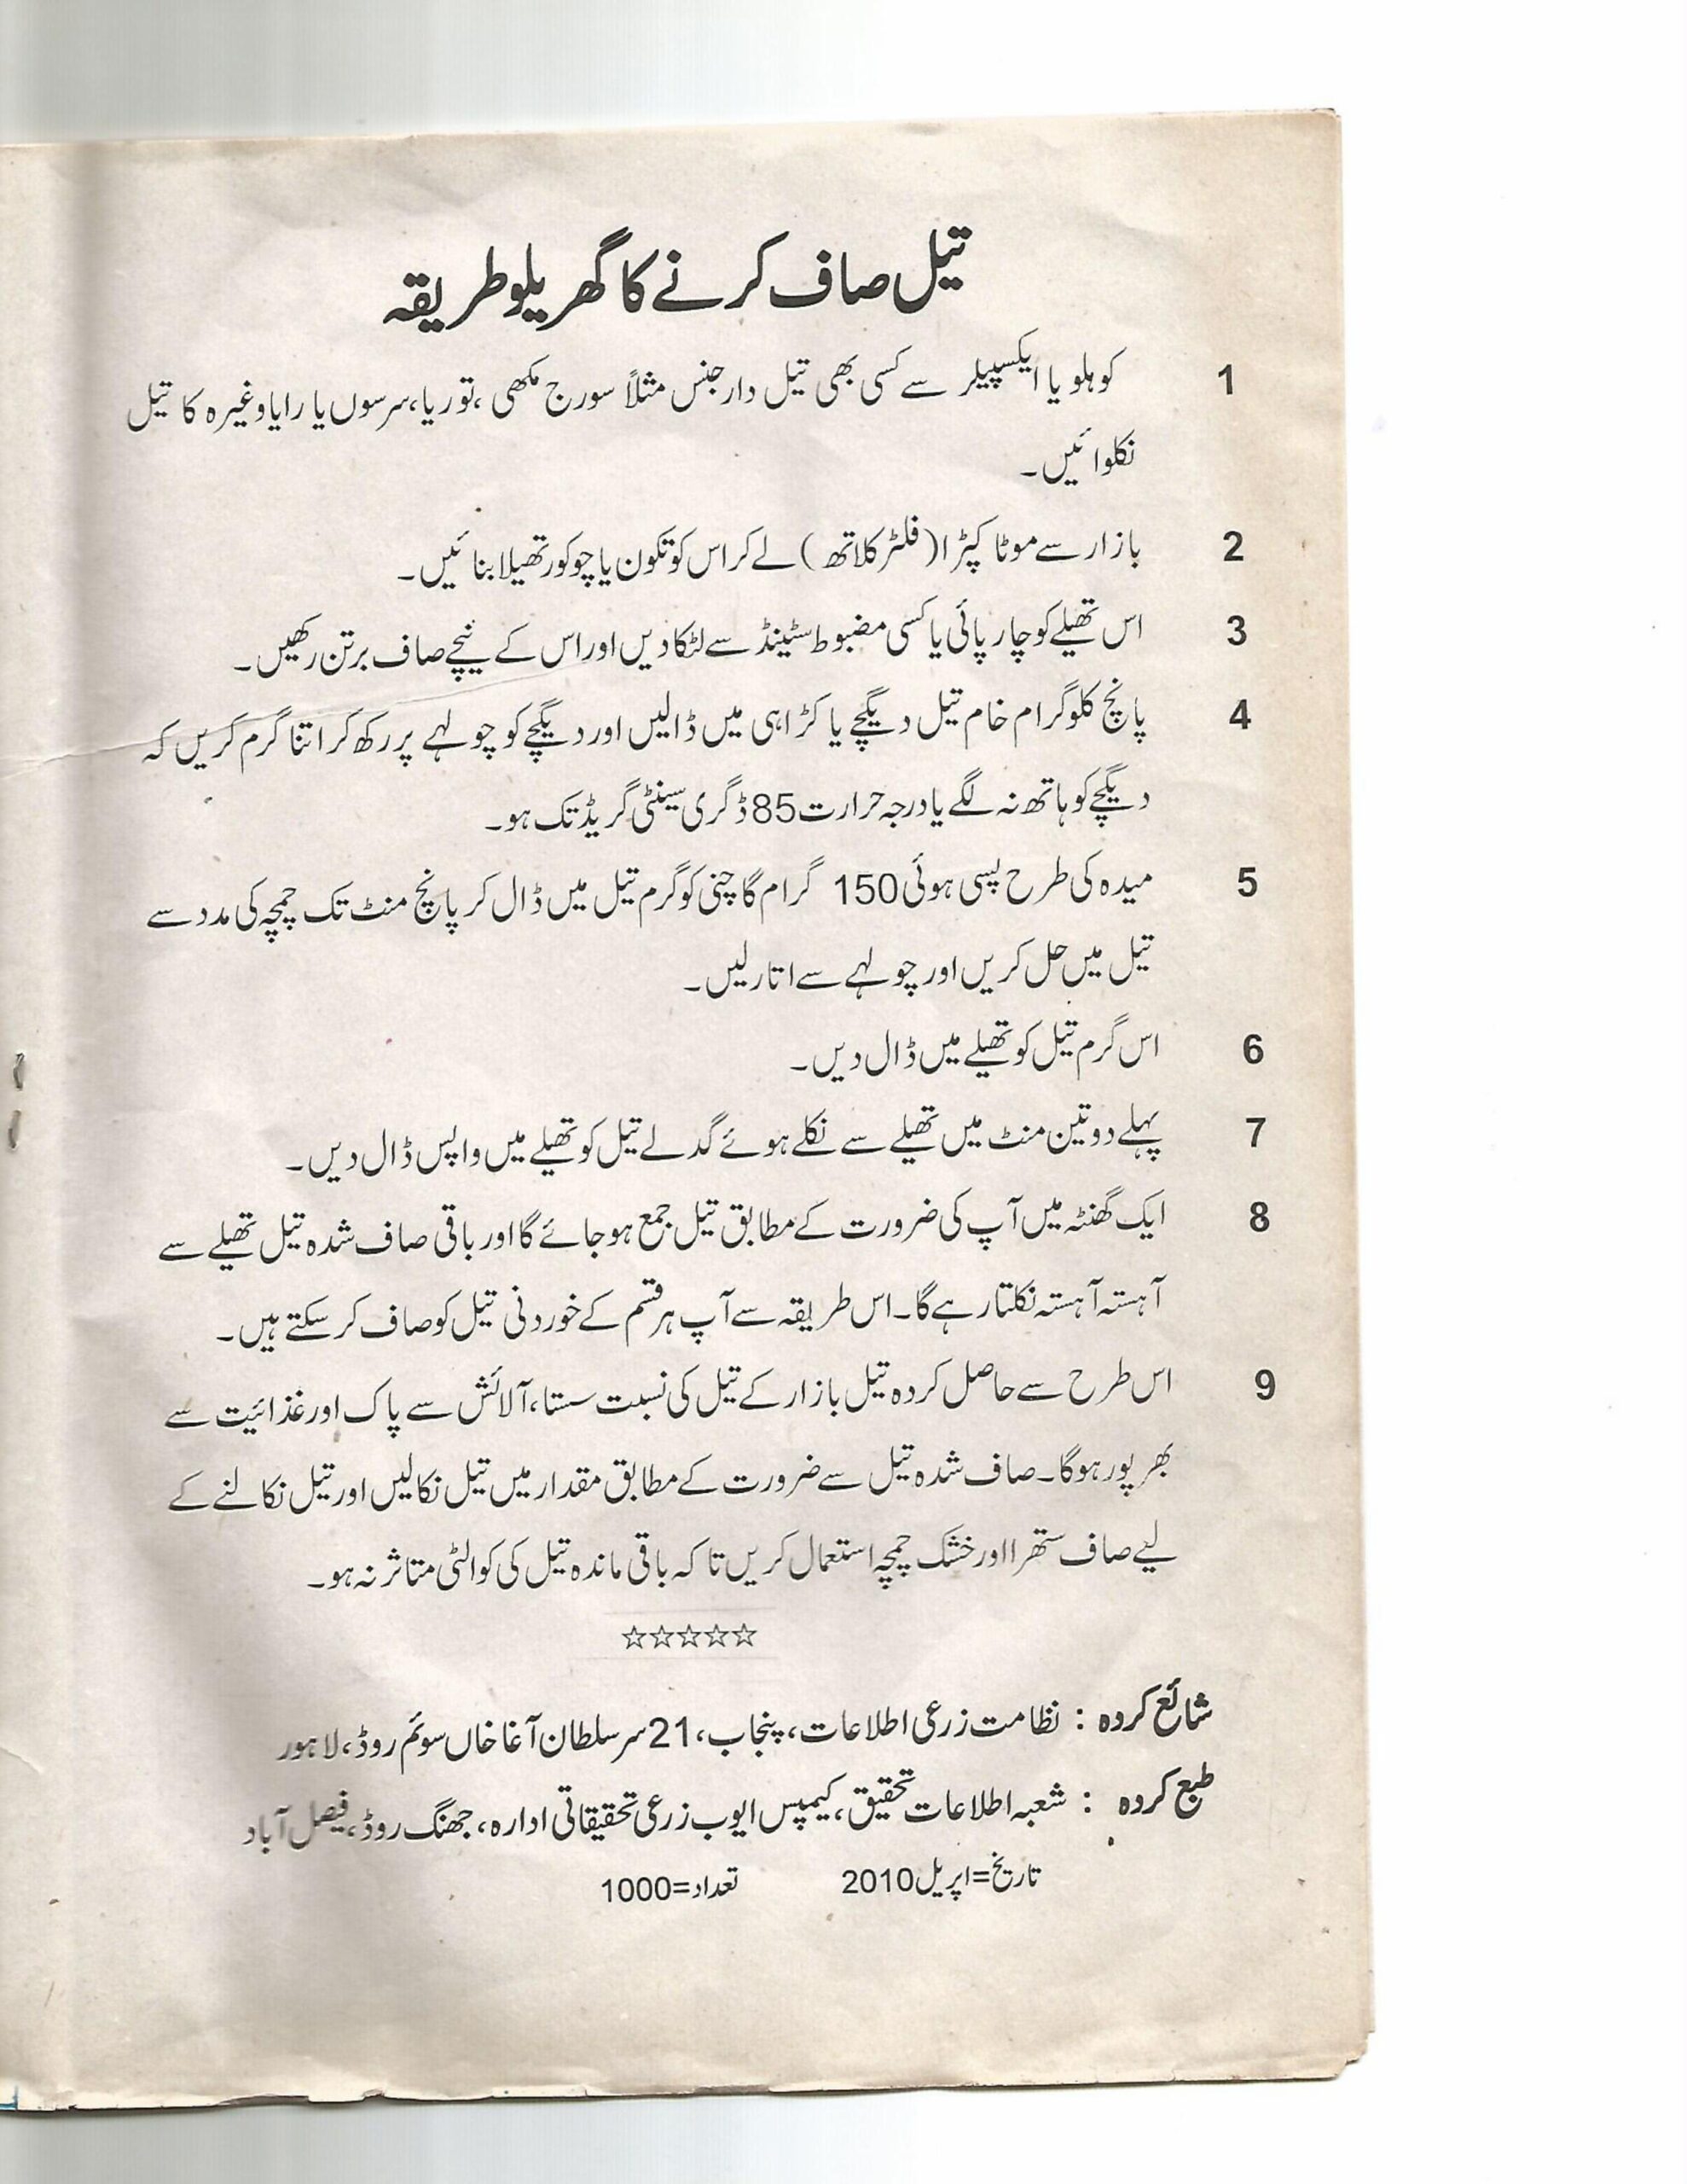 تیل صاف کرنے کا گھریلو طریقہ
1 کوہلو یا ایکسپیلر سے کسی بھی تیل دار جنس مثلاً سورج مکھی، توریا، سرسوں یا رایا وغیرہ کا تیل
نکلوائیں۔
2 بازار سے موٹا کپڑا (فلٹر کلاتھ) لے کر اس کو تکون یا چوکور تھیلا بنائیں۔
3 اس تھیلے کو چارپائی یا کسی مضبوط سٹینڈ سے لٹکا دیں اور اس کے نیچے صاف برتن رکھیں۔
4 پانچ کلوگرام خام تیل دیگچے یا کڑاہی میں ڈالیں اور دیگچے کو چولہے پر رکھ کر اتنا گرم کریں کہ
دیگچے کو ہاتھ نہ لگے یا درجہ حرارت 85 ڈگری سینٹی گریڈ تک ہو۔
5 میدہ کی طرح پسی ہوئی 150 گرام گاچنی کو گرم تیل میں ڈال کر پانچ منٹ تک چمچہ کی مدد سے
تیل میں حل کریں اور چولہے سے اتار لیں۔
6 اس گرم تیل کو تھیلے میں ڈال دیں۔
7 پہلے دو تین منٹ میں تھیلے سے نکلے ہوئے گدلے تیل کو تھیلے میں واپس ڈال دیں۔
8 ایک گھنٹہ میں آپ کی ضرورت کے مطابق تیل جمع ہو جائے گا اور باقی صاف شدہ تیل تھیلے سے
آہستہ آہستہ نکلتا رہے گا۔ اس طریقہ سے آپ ہر قسم کے خوردنی تیل کو صاف کر سکتے ہیں۔
9 اس طرح سے حاصل کردہ تیل بازار کے تیل کی نسبت سستا، آلائش سے پاک اور غذائیت سے
بھرپور ہوگا۔ صاف شدہ تیل سے ضرورت کے مطابق مقدار میں تیل نکالیں اور تیل نکالنے کے
لیے صاف ستھرا اور خشک چمچہ استعمال کریں تا کہ باقی ماندہ تیل کی کوالٹی متاثر نہ ہو۔
☆☆☆☆☆
شائع کردہ : نظامت زرعی اطلاعات، پنجاب، 21 سر سلطان آغا خاں سوئم روڈ، لاہور
طبع کردہ : شعبہ اطلاعات تحقیق، کیمپس ایوب زرعی تحقیقاتی ادارہ، جھنگ روڈ، فیصل آباد
تاریخ=اپریل 2010 تعداد=1000